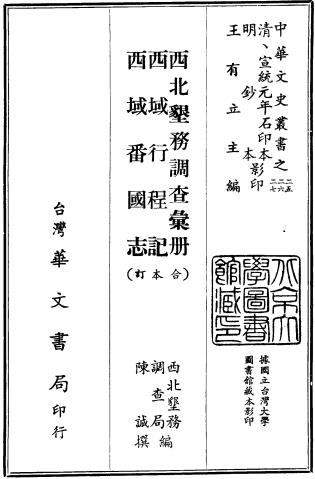 中華文史叢書之二五二六二七
清、宣統元年石印本影印
明鈔本
王有立主編
據國立台灣大學
圖書館藏本影印
西北墾務調查彙册
西域行程記
西域番國志
(合本訂)
西北墾務
調查局編
陳誠撰
台灣華文書局印行